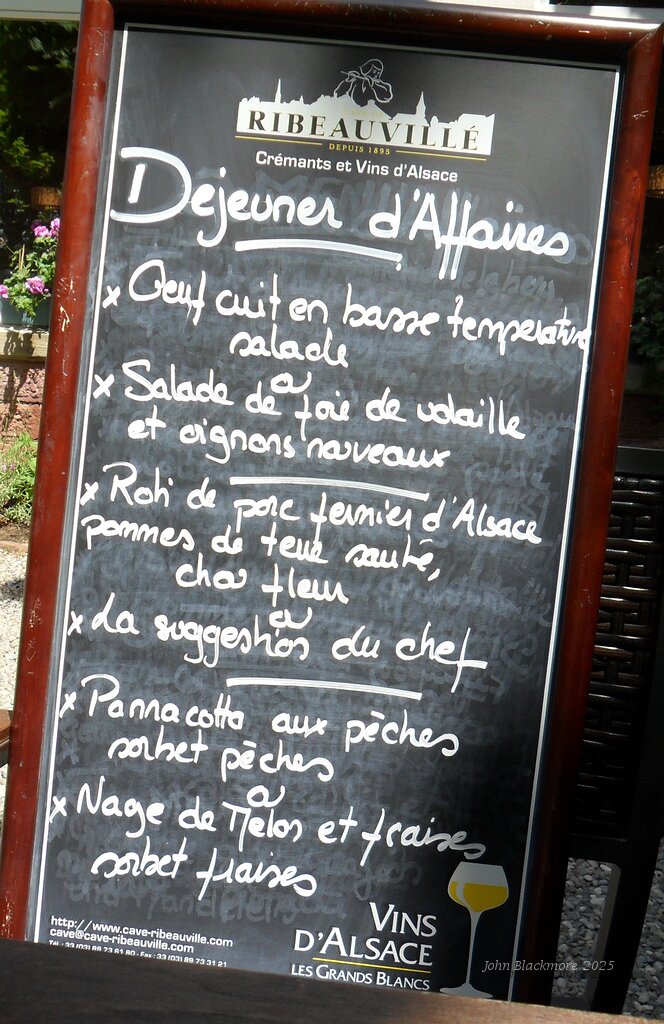 RIBEAUVILLÉ
DEPUIS 1895
Crémants et Vins d'Alsace
Déjeuner d'Affaires
x Oeuf cuit en basse temperature
salade
ou
x Salade de foie de volaille
et oignons nouveaux
x Roti de porc fermier d'Alsace
pommes de terre sauté,
chou fleur
ou
x La suggestion du chef
x Pannacotta aux pêches
sorbet pêches
ou
x Nage de Melon et fraises
sorbet fraises
http://www.cave-ribeauville.com
cave@cave-ribeauville.com
Tél : 33 (0)3 89 73 61 80 - Fax : 33 (0)3 89 73 31 21
VINS
D'ALSACE
LES GRANDS BLANCS
John Blackmore 2025